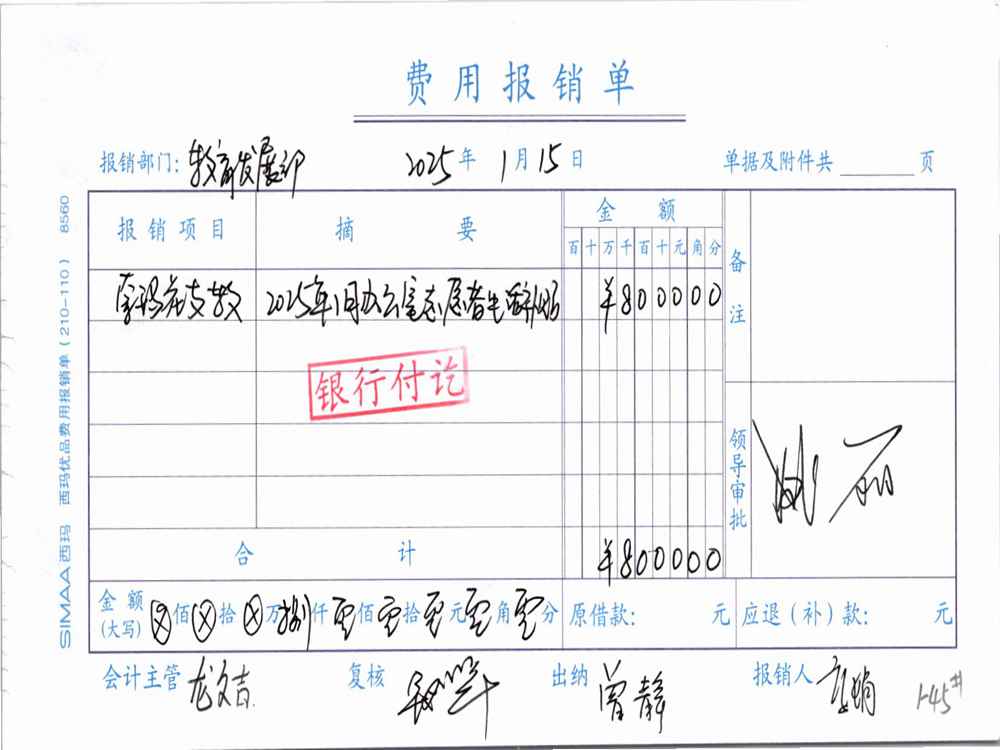 费用报销单
报销部门: 教育发展部 2025年 1月15日 单据及附件共 页
报销项目 摘要 金额 备注
百十万千百十元角分
支教 2025年1月办公室志愿者生活补贴 ¥800000
银行付讫
领导审批
合计 ¥800000
金额(大写) ⊗佰⊗拾⊗万捌仟零佰零拾零元零角零分 原借款: 元 应退(补)款: 元
会计主管 龙文吉 复核 出纳 曾静 报销人 1-45#
SIMAA西玛 西玛优品费用报销单(210-110) 8560